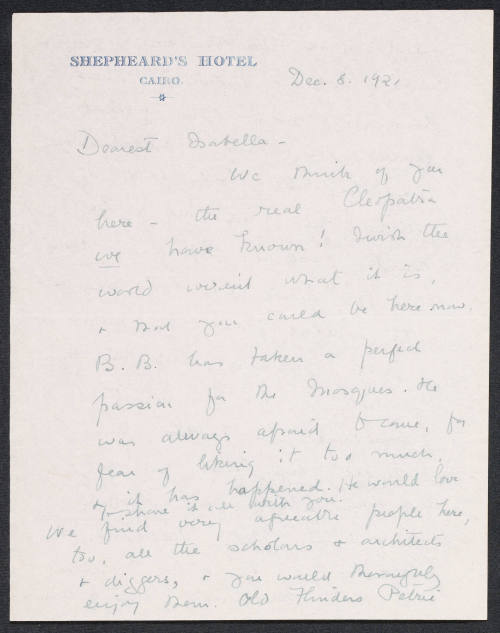 SHEPHEARD'S HOTEL
CAIRO.
Dec. 8. 1921
Dearest Isabella -
We think of you
here - the real Cleopatra
we have known! I wish the
world weren't what it is,
& that you could be here now.
B. B. has taken a perfect
passion for the Mosques. He
was always afraid to come, for
fear of liking it too much,
& it has happened. He would love
to share it all with you.
We find very agreeable people here,
too, all the scholars & architects
& diggers, & you would thoroughly
enjoy them. Old Flinders Petrie